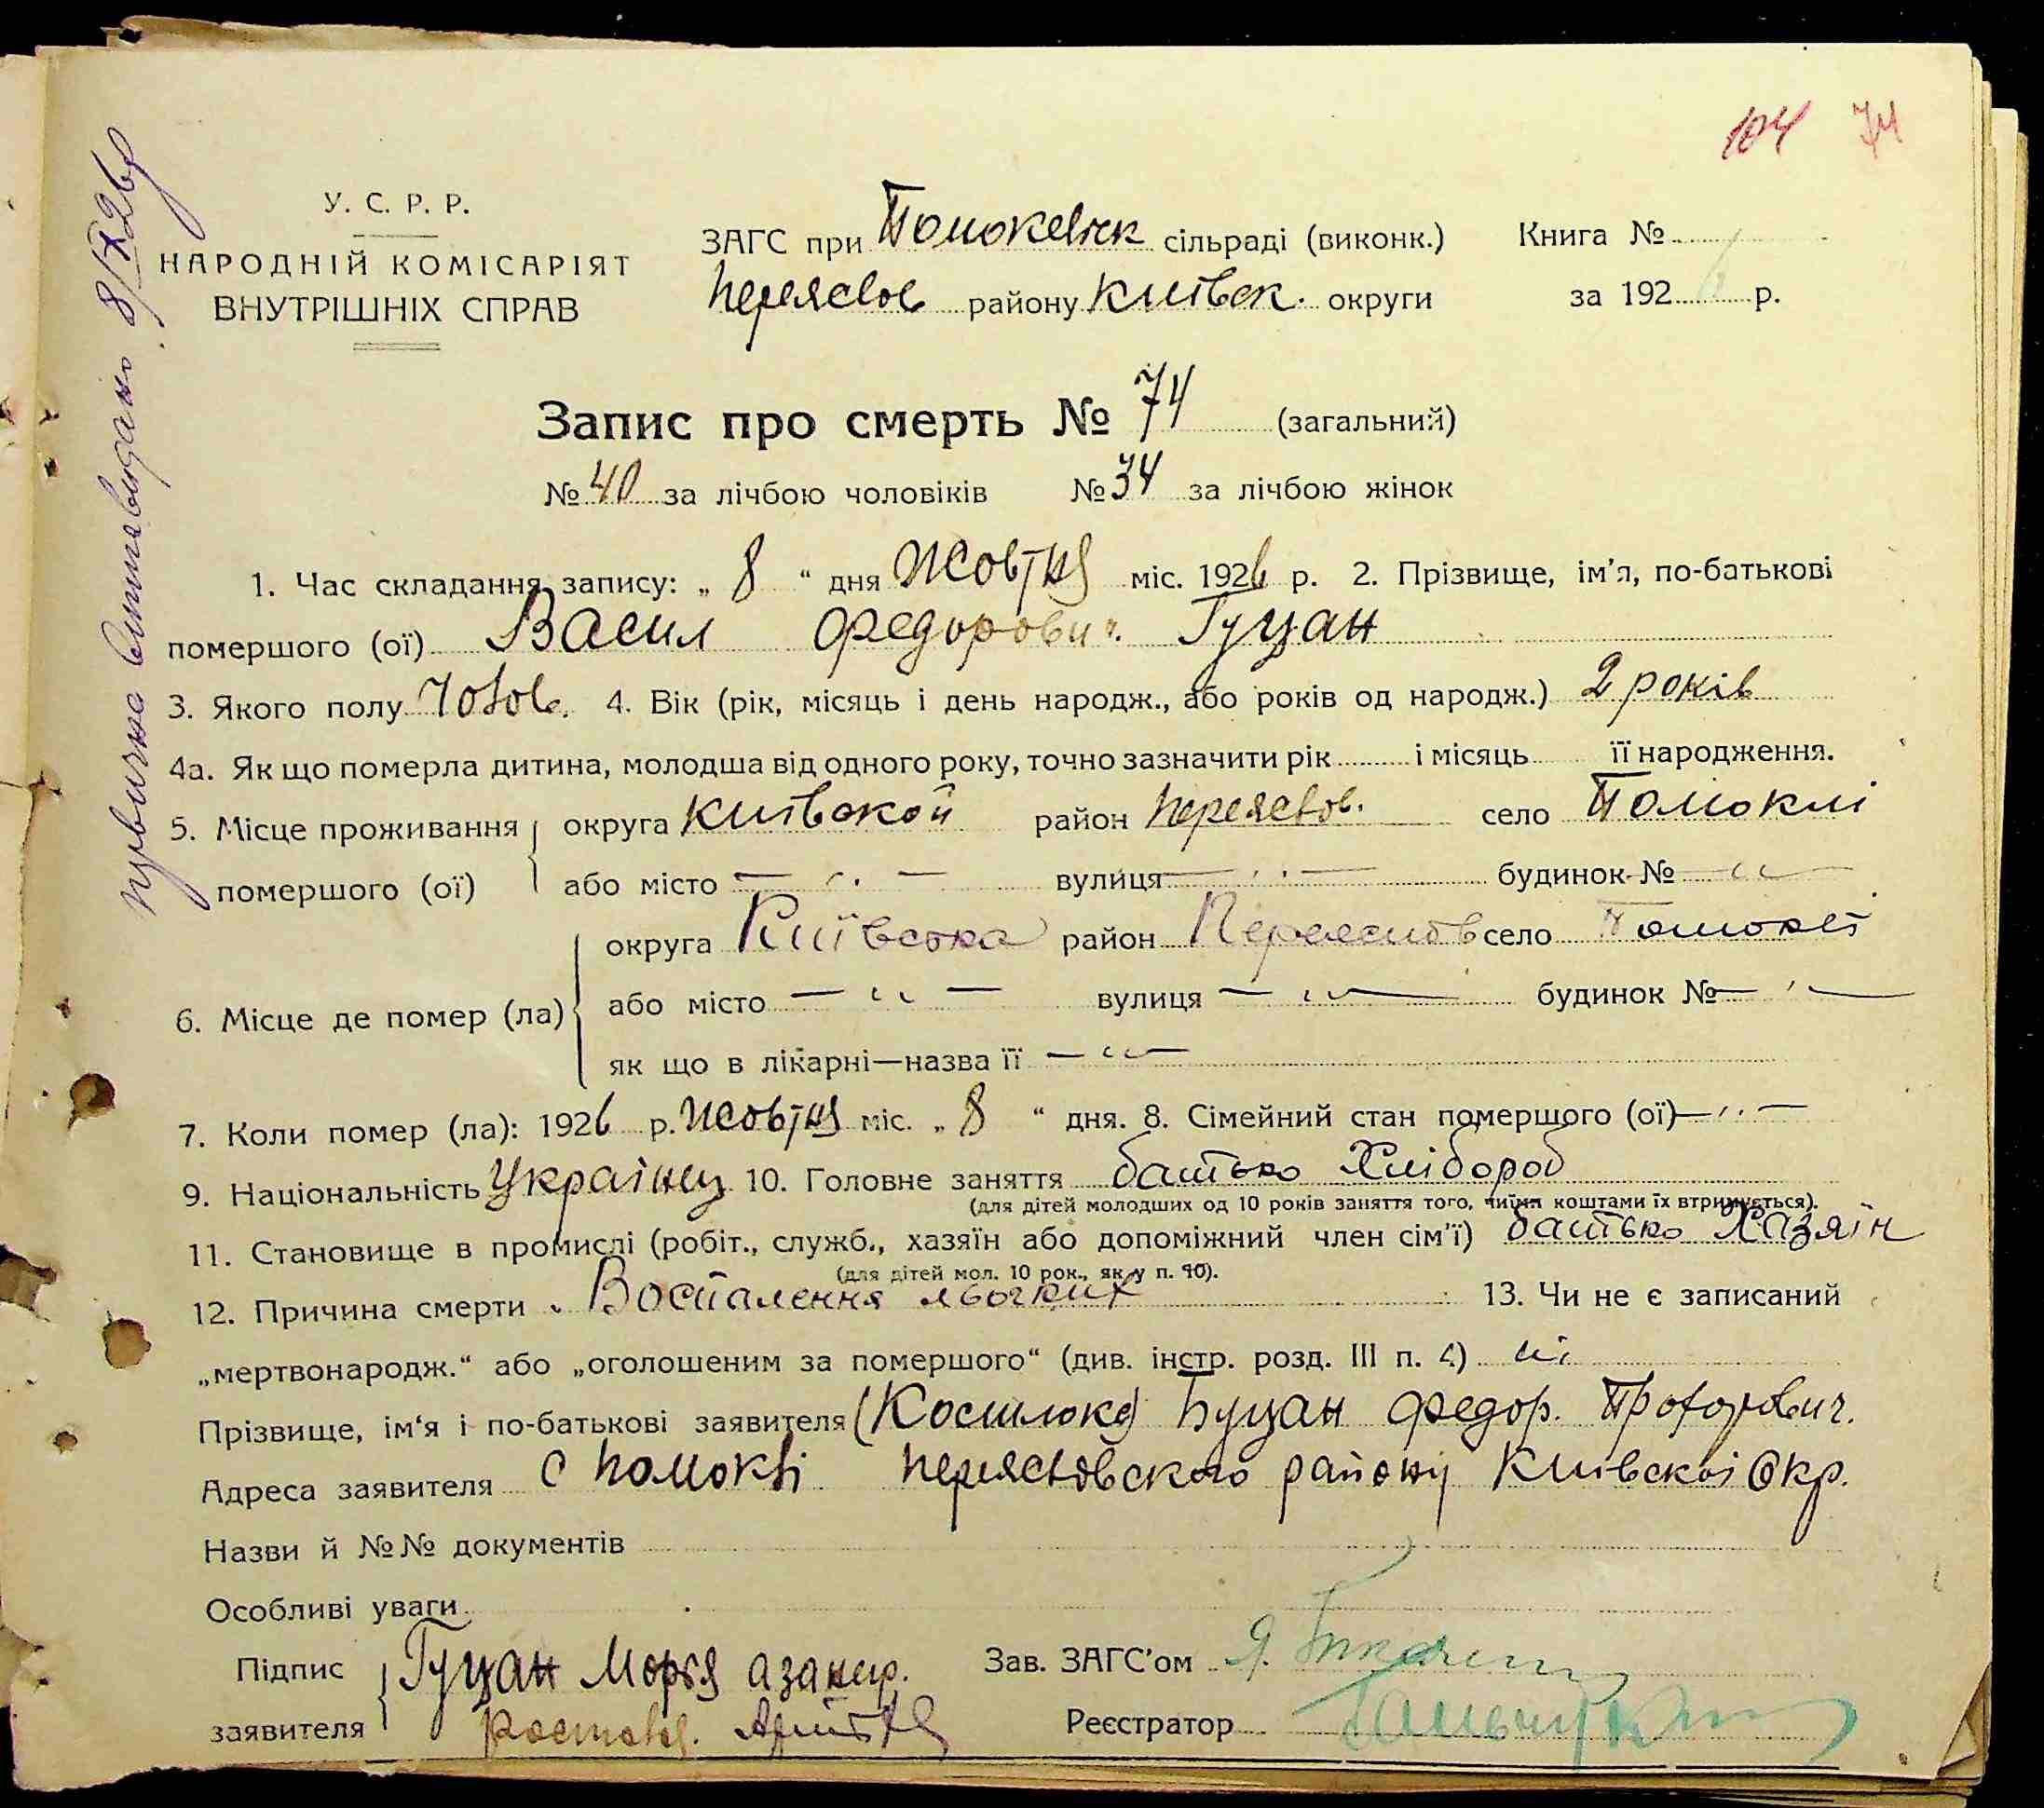 104 74
У. С. Р. Р.
НАРОДНІЙ КОМІСАРІЯТ
ВНУТРІШНІХ СПРАВ
8/X 26р
ЗАГС при Помоклівск сільраді (виконк.) Книга №
Переяслов району Київск. округи за 1926 р.
Запис про смерть № 74 (загальний)
№ 40 за лічбою чоловіків № 34 за лічбою жінок
1. Час складання запису: „ 8 “ дня Жовтня міс. 1926 р. 2. Прізвище, ім'я, по-батькові
помершого (ої) Васил Федорович. Гуцан
3. Якого полу Чолов. 4. Вік (рік, місяць і день народж., або років од народж.) 2 років
4а. Як що померла дитина, молодша від одного року, точно зазначити рік і місяць її народження.
5. Місце проживання округа Київской район Переяслов. село Помоклі
помершого (ої) або місто — „ — вулиця — „ — будинок № — „ —
округа Київська район Переяслов село Помоклі
6. Місце де помер (ла) або місто — „ — вулиця — „ — будинок № — „ —
як що в лікарні—назва її — „ —
7. Коли помер (ла): 1926 р. Жовтня міс. „ 8 “ дня. 8. Сімейний стан помершого (ої) — „ —
9. Національність Українец 10. Головне заняття батько Хлібороб
(для дітей молодших од 10 років заняття того, чиїми коштами їх втримується).
11. Становище в промислі (робіт., служб., хазяїн або допоміжний член сім'ї) батько Хазяїн
(для дітей мол. 10 рок., як у п. 10).
12. Причина смерти Воспалення льогких 13. Чи не є записаний
„мертвонародж.“ або „оголошеним за помершого“ (див. інстр. розд. III п. 4) ні
Прізвище, ім'я і по-батькові заявителя Гуцан Федор.
Адреса заявителя с Помоклі Переясловского району Київскоі Окр.
Назви й №№ документів
Особливі уваги
Підпис Гуцан Зав. ЗАГС'ом
заявителя Реєстратор